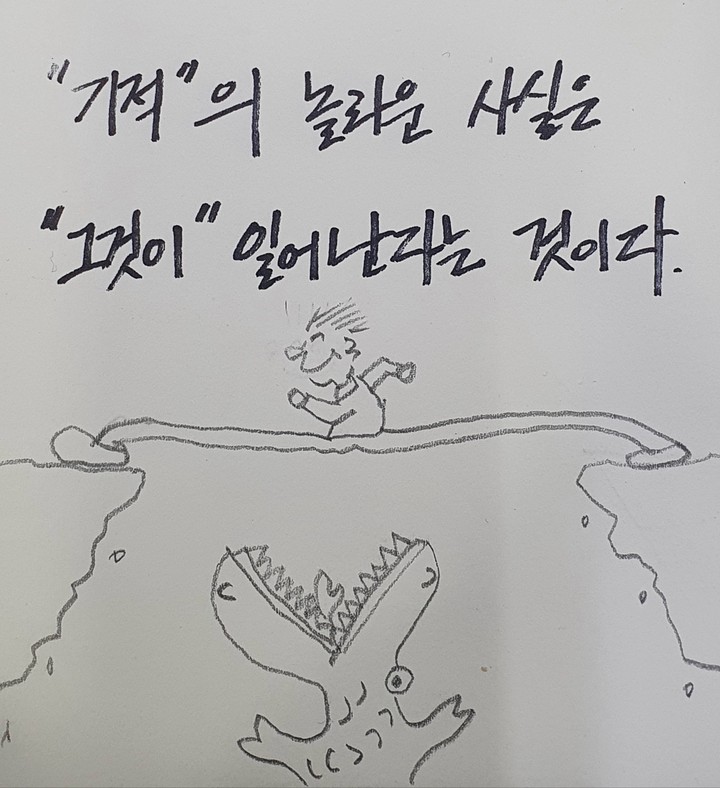 "기적"의 놀라운 사실은
"그것이" 일어난다는 것이다.